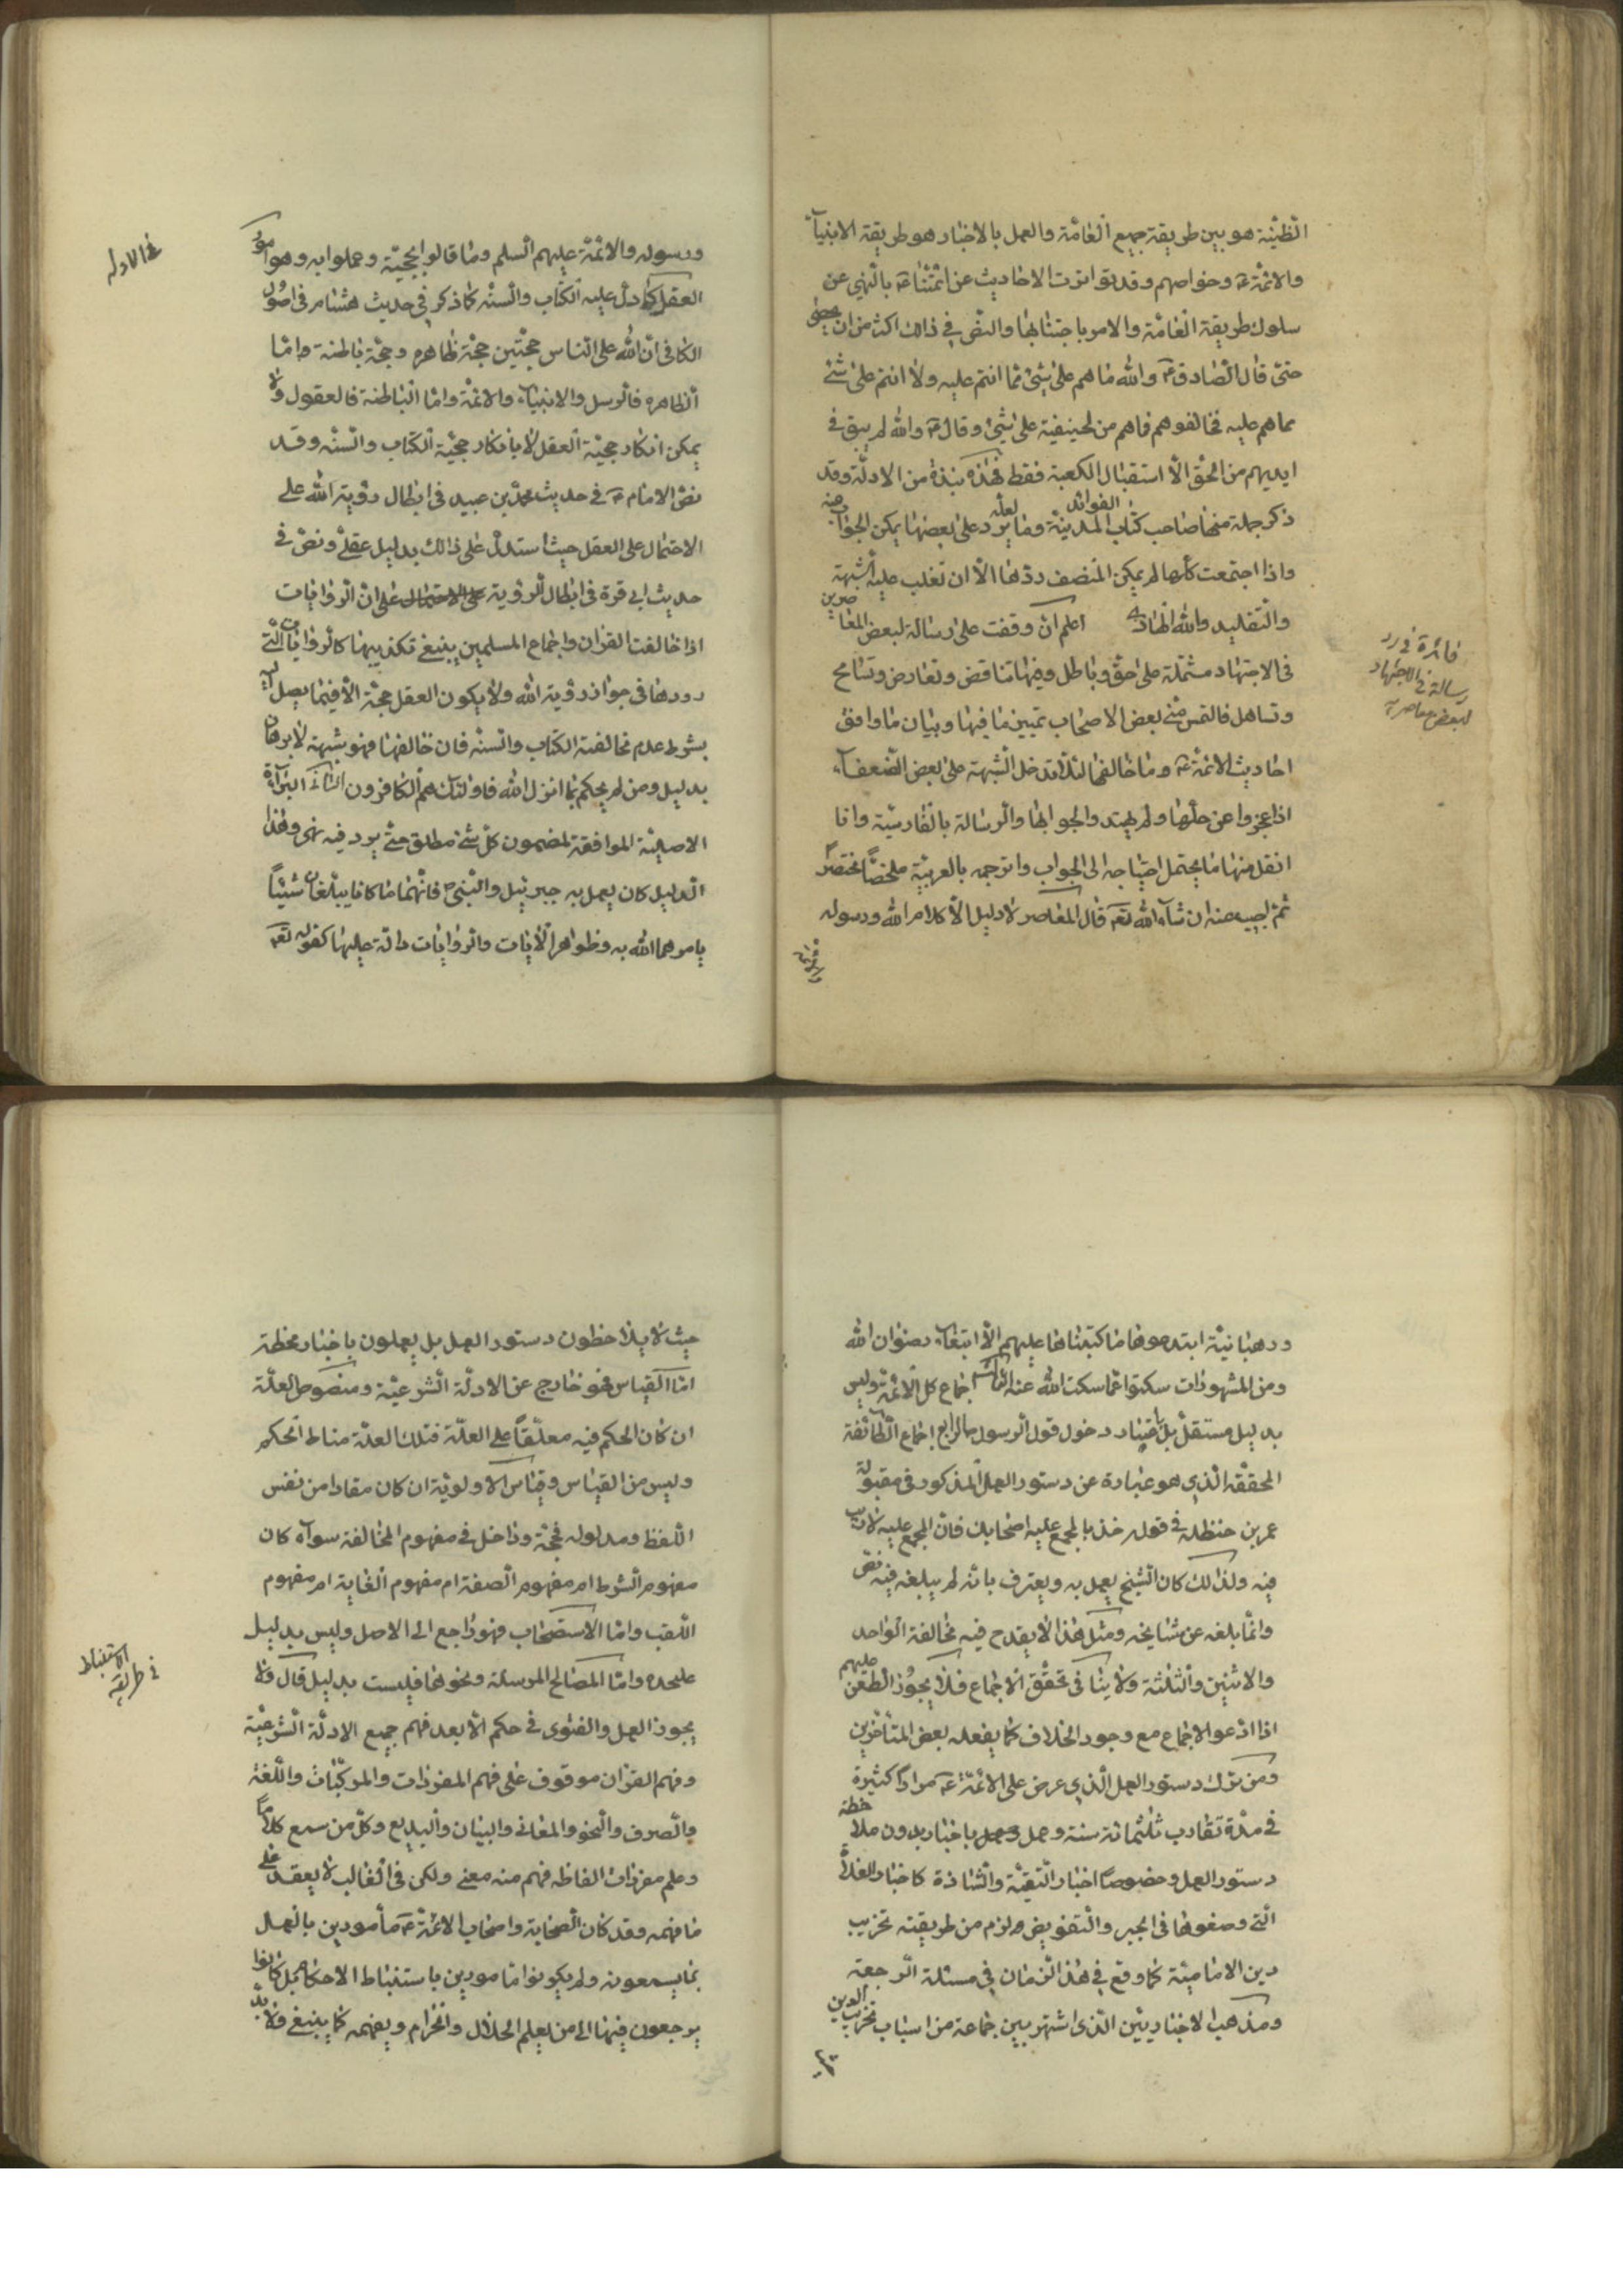 الظنية هو بين طريقة جميع العامة والعمل بالاخبار هو طريقة الانبيآء
والائمة ع وخواصهم وقد تواترت الاحاديث عن ائمتنا ع بالنهي عن
سلوك طريقة العامة والامر باجتنابها والنص في ذالك اكثر من ان يحصى
حتى قال الصادق ع والله ما هم على شئ مما انتم عليه ولا انتم على شئ
مما هم عليه فخالفوهم فاهم من الحنيفية على شئ وقال ع والله لم يبق في
ايديهم من الحق الا استقبال الكعبة فقط فهذه نبذة من الادلة وقد
ذكر جملة منها صاحب كتاب الفوائد المدنية وما لعله يرد على بعضها يمكن الجواب عنه
واذا اجتمعت كلها لم يمكن المنصف ردها الا ان تغلب عليه الشبهة
والتقليد والله الهادي اعلم ان وقفت على رسالة لبعض المعاصرين
في الاجتهاد مشتملة على حق وباطل وفيها تناقض وتعارض وتسامح
وتساهل فالتمس مني بعض الاصحاب تمييز ما فيها وبيان ما وافق
احاديث الائمة ع وما خالفها لئلا تدخل الشبهة على بعض الضعفآء
اذا عجزوا عن حلها ولم يهتدوا لجوابها والرسالة بالفارسية وانا
انقل منها ما يحتمل احتياجه الى الجواب واترجمه بالعربية ملخصا مختصرا
ثم اجيب عنه ان شآء الله تع قال المعاصر لا دليل الا كلام الله ورسوله
فائدة في رد
رسالة في الاجتهاد
لبعض معاصريه
ورسوله والائمة عليهم السلم وما قالوا بحجيته وعملوا به وهو امور
العقل كما دل عليه الكتاب والسنه كما ذكر في حديث هشام في اصول
الكافي ان لله على الناس حجتين حجة ظاهره وحجة باطنة واما
الظاهره فالرسل والانبيآء والائمة واما الباطنة فالعقول ولا
يمكن انكار حجية العقل الا بانكار حجية الكتاب والسنه وقد
نص الامام ع في حديث محمد بن عبيد في ابطال رؤية الله على
الاحتمال على العقل حيث استدل على ذالك بدليل عقلي ونص في
حديث ابي قرة في ابطال الرؤية على الاحتمال على ان الروايات
اذا خالفت القران واجماع المسلمين ينبغي تكذيبها كالروايات التي
وردها في جواز رؤية الله ولا يكون العقل حجة الا فيما يصل اليه
بشرط عدم مخالفة الكتاب والسنه فان خالفها فهو شبهة لا برهان
بدليل ومن لم يحكم بما انزل الله فاولئك هم الكافرون الثاني البرآءة
الاصلية الموافقة لمضمون كل شئ مطلق حتى يرد فيه نهى وهذا
الدليل كان يعمل به جبرئيل والنبي ص فانهما ما كانا يبلغان شيئا
يامرهما الله به وظواهر الايات والروايات دالة عليها كقوله تع
في الادلة
ورهبانية ابتدعوها ما كتبناها عليهم الا ابتغآء رضوان الله
ومن المشهورات سكتوا عما سكت الله عنه الثالث اجماع كل الائمة وليس
بدليل مستقل بل باعتبار دخول قول الرسول الرابع اجماع الطائفة
المحققه الذي هو عبارة عن دستور العمل المذكور في مقبولة
عمر بن حنظلة في قوله خذ بالمجمع عليه اصحابك فان المجمع عليه لا ريب
فيه ولذالك كان الشيخ يعمل به ويعترف بانه لم يبلغه فيه نص
وانما بلغه عن مشايخه ومثل هذا لا يقدح فيه مخالفة الواحد
والاثنين والثلثة ولا ينافي تحقق الاجماع فلا يجوز الطعن عليهم
اذا ادعوا الاجماع مع وجود الخلاف كما يفعله بعض المتاخرين
ومن ترك دستور العمل الذي عرض على الائمة ع مرارا كثيرة
في مدة تقارب ثلثمائة سنة وعمل باخبار بدون ملاحظة
دستور العمل وخصوصا اخبار التقية والشاذة كاخبار الغلاة
التي وضعوها في الجبر والتفويض ولزم من طريقته تخريب
دين الامامية كما وقع في هذا الزمان في مسئلة الرجعة
ومذهب الاخباريين الذي اشتهر بين جماعة من اسباب تخريب الدين
حيث لا يلاحظون دستور العمل بل يعملون باخبار محظة
اما القياس فهو خارج عن الادلة الشرعية ومنصوص العلة
ان كان الحكم فيه معلقا على العلة فتلك العلة مناط الحكم
وليس من القياس وقياس الاولوية ان كان مفادا من نفس
اللفظ ومدلوله فحجة وداخل في مفهوم المخالفة سوآء كان
مفهوم الشرط ام مفهوم الصفة ام مفهوم الغاية ام مفهوم
اللقب واما الاستصحاب فهو راجع الى الاصل وليس بدليل
عليحده واما المصالح المرسلة ونحوها فليست بدليل قال ولا
يجوز العمل والفتوى في حكم الا بعد فهم جميع الادلة الشرعية
وفهم القران موقوف على فهم المفردات والمركبات واللغة
والصرف والنحو والمعاني والبيان والبديع وكل من سمع كلاما
وعلم مفردات الفاظه فهم منه معنى ولكن في الغالب لا يعقد على
ما فهمه وقد كان الصحابة واصحاب الائمة ع مأمورين بالعمل
بما يسمعونه ولم يكونوا مامورين باستنباط الاحكام بل كانوا
يرجعون فيها الى من يعلم الحلال والحرام ويفهمه كما ينبغي ولا بد
في طريقه
الاستنباط